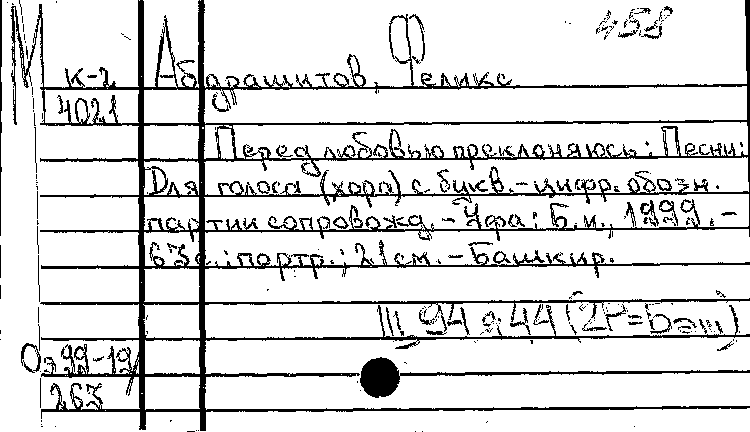 М
458
К-2
Абдрашитов, Феликс
4021
Перед любовью преклоняюсь: Песни:
Для голоса (хора) с букв.-цифр. обозн.
партии сопровожд. - Уфа: Б.и., 1999. -
63 с.: портр.; 21 см. - Башкир.
Щ 94 я 44 (2Р=Баш)
Оэ 99-19/
263